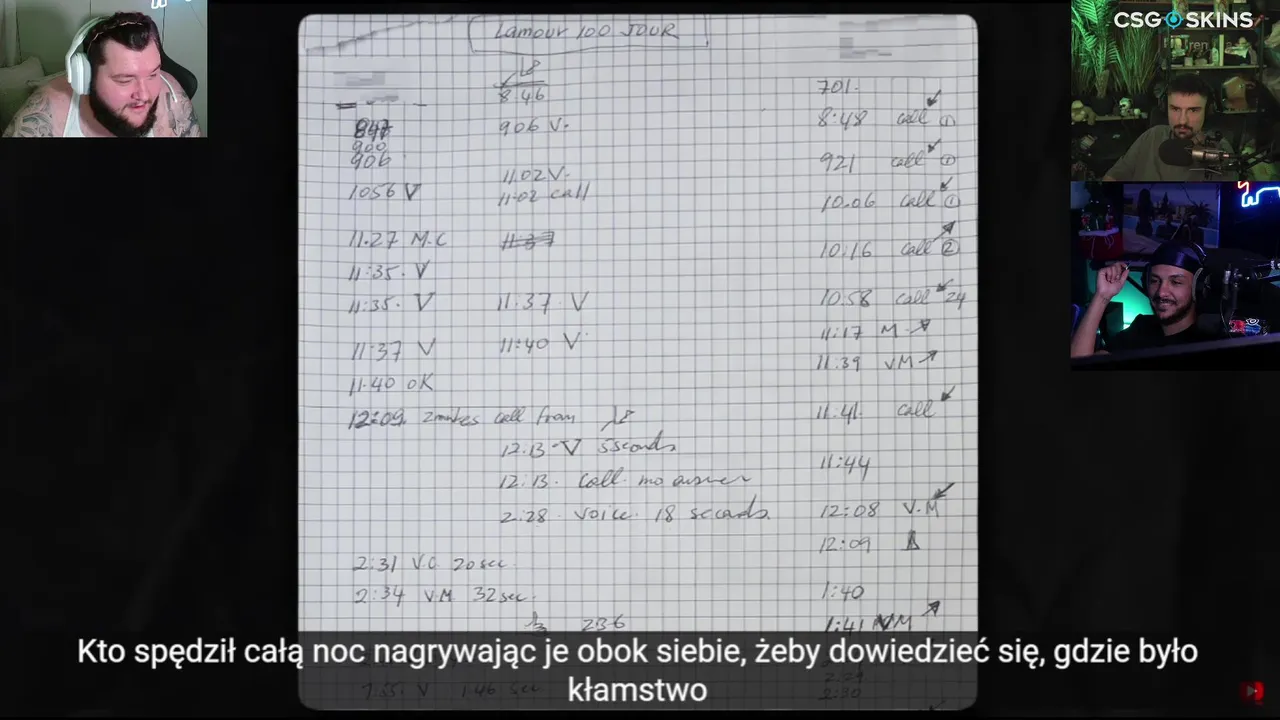 CSGOSKINS
Lamour 100 JOUR
8.46
701.
847
906 V.
8:48 call 1
900
906
921 call 1
11.02 V.
1056 V
11.02 call
10.06 call 1
11.27 M.C
11:37
10:16 call 2
11:35. V
11:35. V
11:37. V
10:58 call 24
11:17 M
11:37 V
11:40 V
11:39 VM
11.40 OK
12:09. 2 minutes call from
11:41. call
12.13 V 5 seconds
11:44
12:13. Call. no answer
2:28. voice. 18 seconds.
12:08 V.M
12:09
2:31 V.C 20 sec.
2:34 V.M. 32 sec.
1:40
236
1:41 VM
Kto spędził całą noc nagrywając je obok siebie, żeby dowiedzieć się, gdzie było
kłamstwo
7:55. V 1.46 sec
2:30